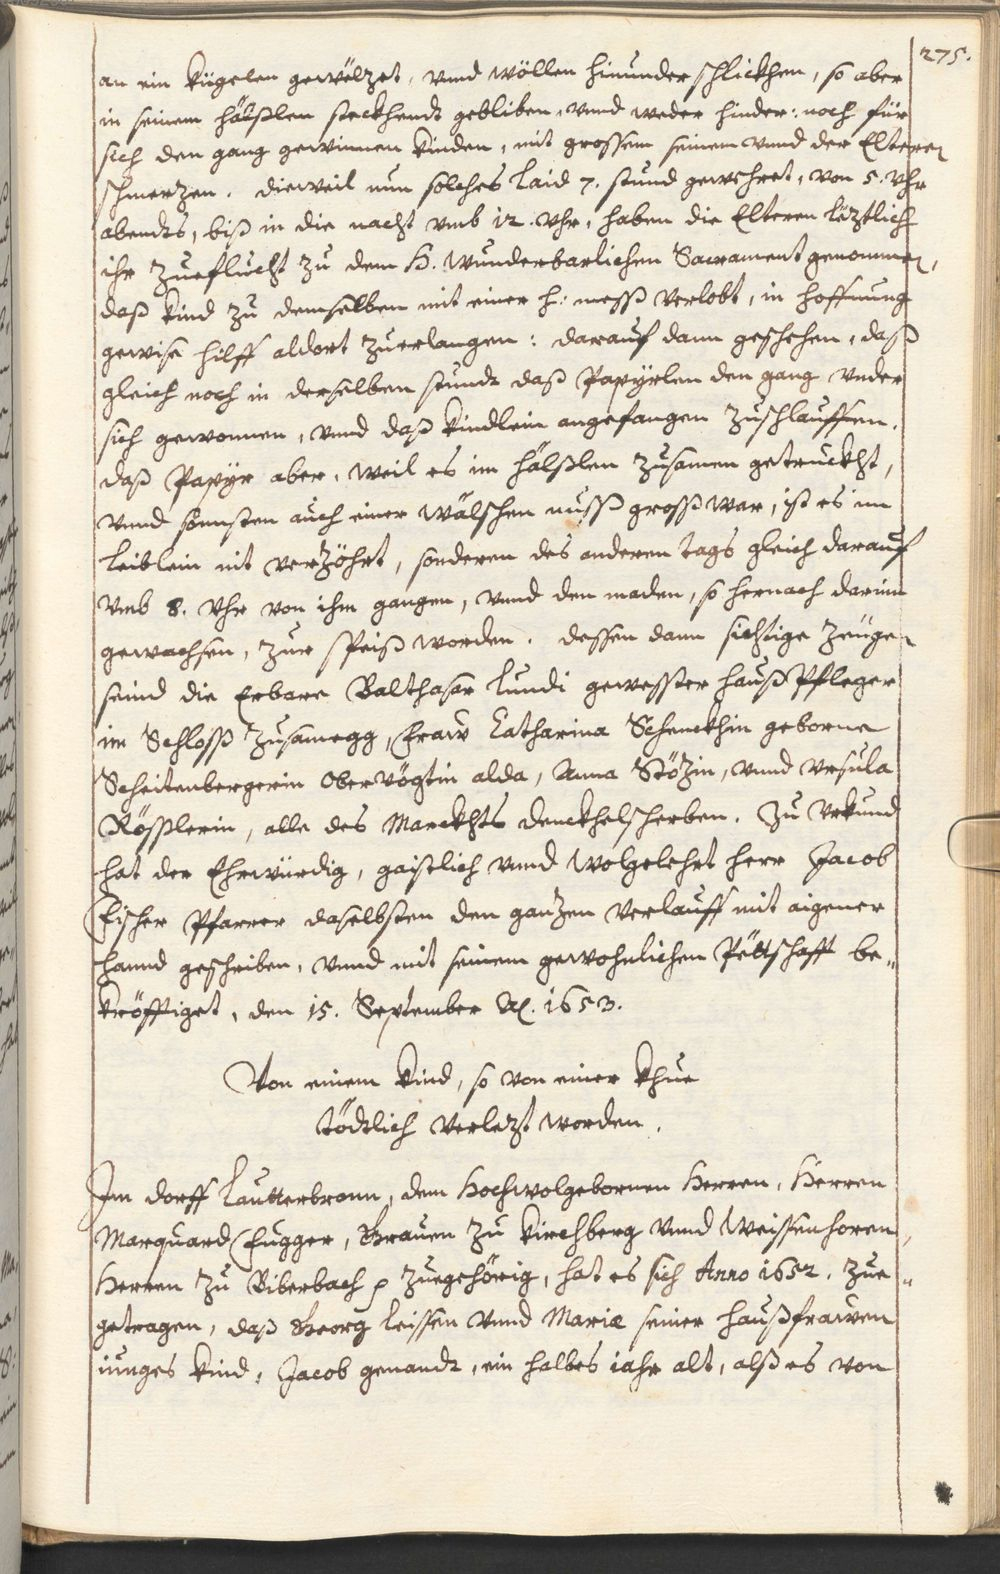 275.
an ein kügelen gewölzet, vnnd wöllen hinunder schlickhen, so aber
in seinem hälßlen steckhendt gebliben, vnnd weder hinder: noch für
sich den gang gewinnen kinden, mit grossem seinem vnnd der Elteren
schmerzen. dieweil nun solches laid 7. stund gewehret, von 5. vhr
abendts, biß in die nacht vmb 12. vhr, haben die Elteren lëztlich
ihr zueflucht zu dem H. Wunderbarlichen Sacrament genommen,
daß kind zu demselben mit einer h: mess verlobt, in hoffnung
gewise hilff aldort zuerlangen: darauf dann geschehen, daß
gleich noch in derselben stundt daß Papyrlen den gang vnder
sich gewonnen, vnnd daß kindlein angefangen zuschlauffen.
daß Papyr aber, weil es im hälßlen zusamen getruckht,
vnnd sonnsten auch einer wälschen nuss gross war, ist es im
leiblein nit verzöhrt, sonderen des anderen tags gleich darauf
vmb 8. vhr von ihm gangen, vnnd den maden, so hernach darinn
gewachsen, zur speiß worden. dessen dann sichtige zeugen
seind die Erbare Balthasar Lundi gewesster hauß Pfleger
im Schloss Zusamegg, Fraw Catharina Schenckhin geborne
Scheitenbergerin Obervögtin alda, Anna Stözin, vnnd Vrsula
Rösslerin, alle des Marckhts denckhelscherben. Zu vrkund
hat der Ehrwürdig, gaistlich vnnd wolgelehrt herr Jacob
Fischer Pfarrer daselbsten den ganzen verlauff mit aigener
hannd geschriben, vnnd mit seinem gewohnlichen Pëttschafft be„
kröfftiget, den 15. September A. 1653.
Von einem kind, so von einer khue
tödtlich verlezt worden.
Im dorff Lautterbronn, dem Hochwolgebornen Herren, Herren
Marquard Fugger, Grauen zu Kirchberg vnnd Weissenhoren,
Herren zu Biberbach p zuegehörig, hat es sich Anno 1652. zue„
getragen, daß Georg leissen vnnd Mariæ seiner haußfrawen
iunges kind, Jacob genandt, ein halbes iahr alt, alß es von